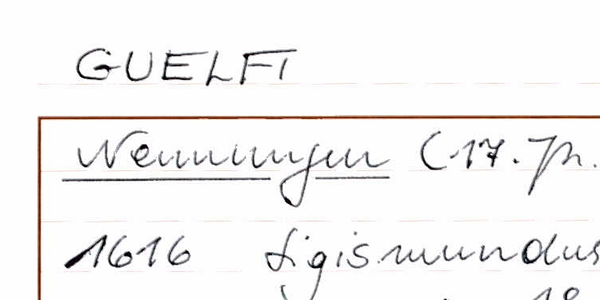 GUELFI
Nenningen (17. Jh.
1616 Sigismundus